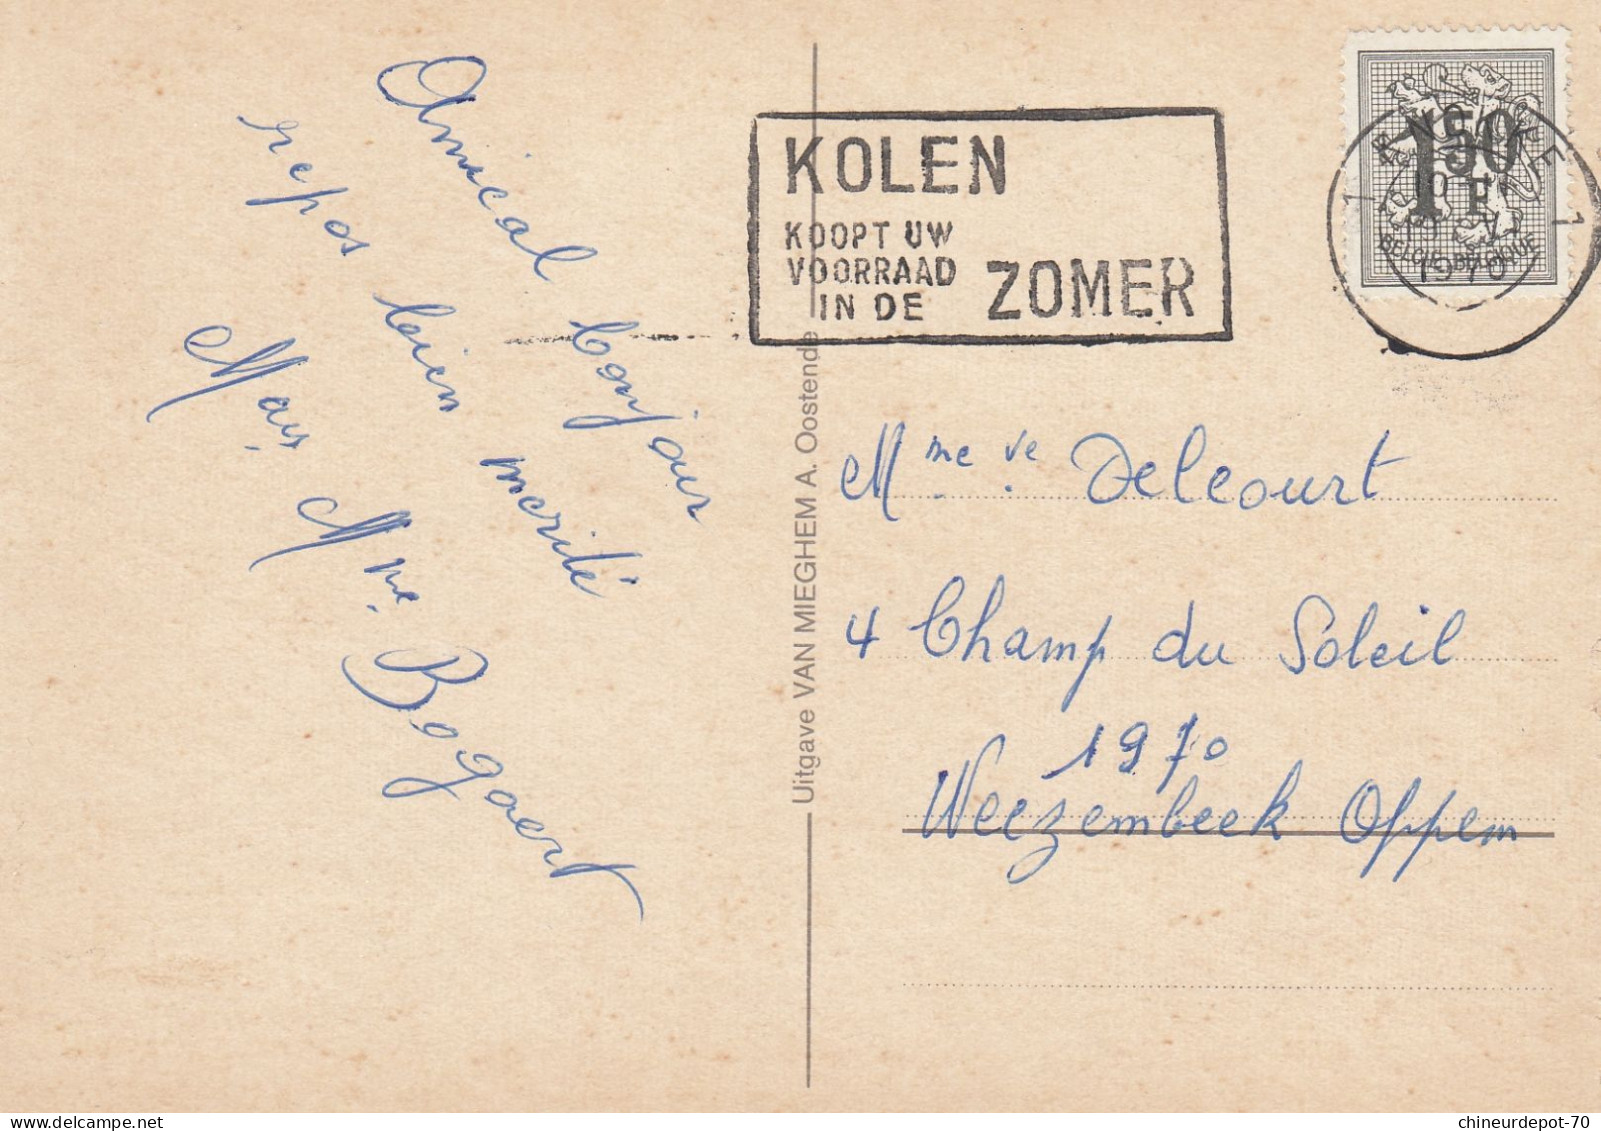 Amical bonjour
repos bien merité
Mais Mme. Bogaert
Uitgave VAN MIEGHEM A. Oostende
KOLEN
KOOPT UW
VOORRAAD
IN DE
ZOMER
1 1
1F50
BELGIE-BELGIQUE
1970
Mme. ve. Delcourt
4 Champ du Soleil
1970
Weezembeek Oppem
chineurdepot-70